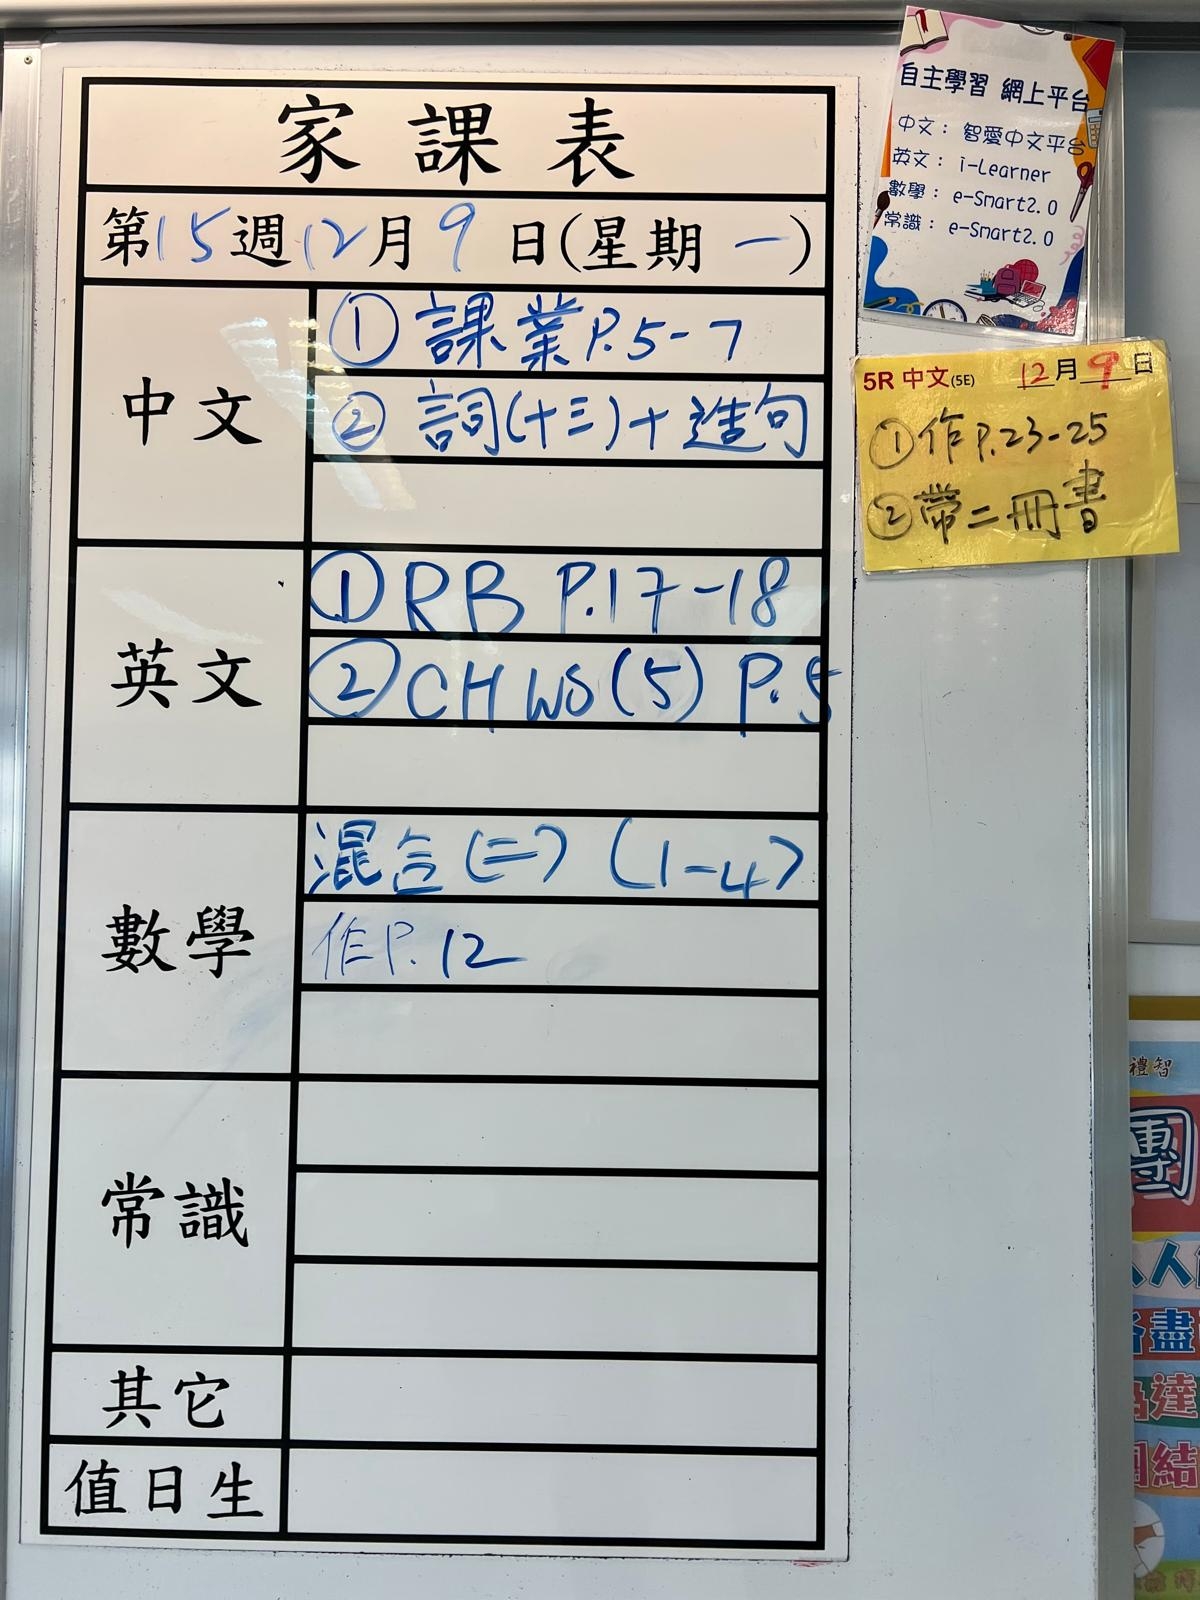 家課表
第15週12月9日(星期一)
中文
① 課業P.5-7
② 詞(十三)+造句
英文
① RB P.17-18
② CH WS(5) P.5
數學
混合(二) (1-4)
作P.12
常識
其它
值日生
自主學習 網上平台
中文： 智愛中文平台
英文： i-Learner
數學： e-Smart2.0
常識： e-Smart2.0
5R 中文(5E) 12月9日
①作P.23-25
②帶二冊書
禮智
團
人人
盡
達
結